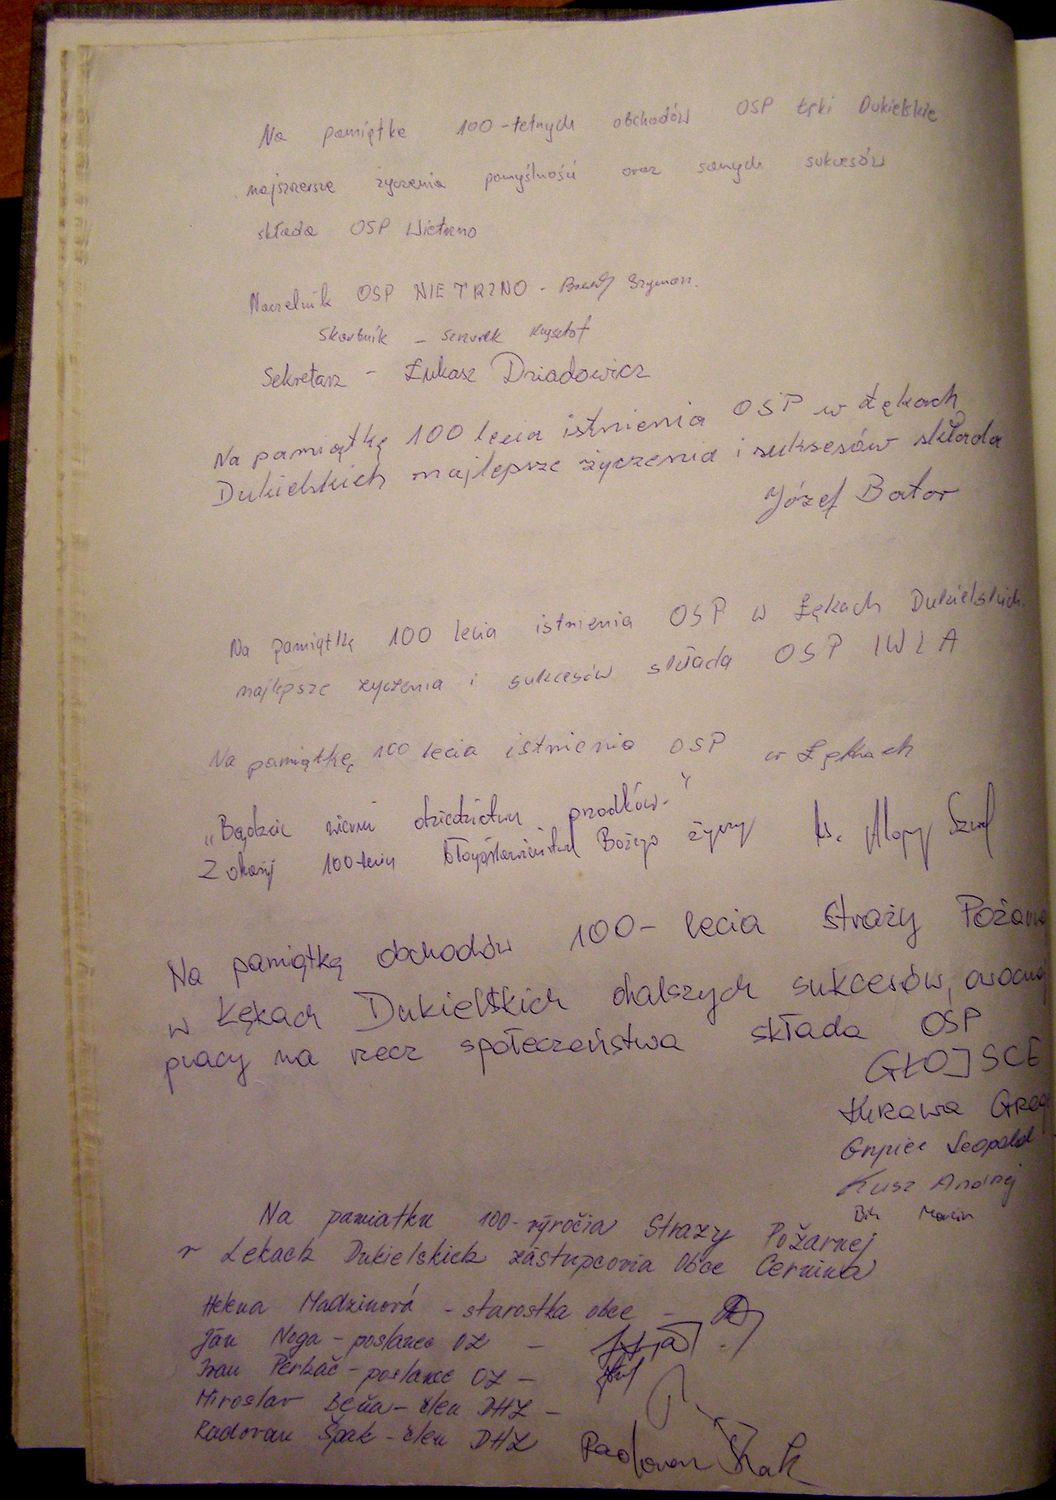 Na pamiątkę 100-letnych obchodów OSP Łęki Dukielskie
najszczersze życzenia pomyślności oraz samych sukcesów
składa OSP Wietrzno
Naczelnik OSP WIETRZNO -
Skarbnik - Szczurek Krzysztof
Sekretarz - Łukasz Dziadowicz
Na pamiątkę 100 lecia istnienia OSP w Łękach
Dukielskich najlepsze życzenia i sukcesów składa
Józef Bator
Na pamiątkę 100 lecia istnienia OSP w Łękach Dukielskich
najlepsze życzenia i sukcesów składa OSP IWLA
Na pamiątkę 100 lecia istnienia OSP w Łękach
„Bądźcie wierni dziedzictwu przodków."
Z okazji 100-lecia błogosławieństwa Bożego życzy ks.
Na pamiątkę obchodów 100-lecia Straży
w Łękach Dukielskich dalszych sukcesów,
pracy na rzecz społeczeństwa składa OSP
GŁOJSCE
Leopold
Kusz Andrzej
Marcin
Na pamiatku 100-výročia Strazy Požarnej
v Lekach Dukielskich zástupcovia Obce Cernina
Helena Madzinová - starostka obce -
Ján Noga - poslanec OZ -
Ivan Perkač - poslanec OZ -
Miroslav Beňa - člen DHZ -
Radovan Špak - člen DHZ Radovan Špak